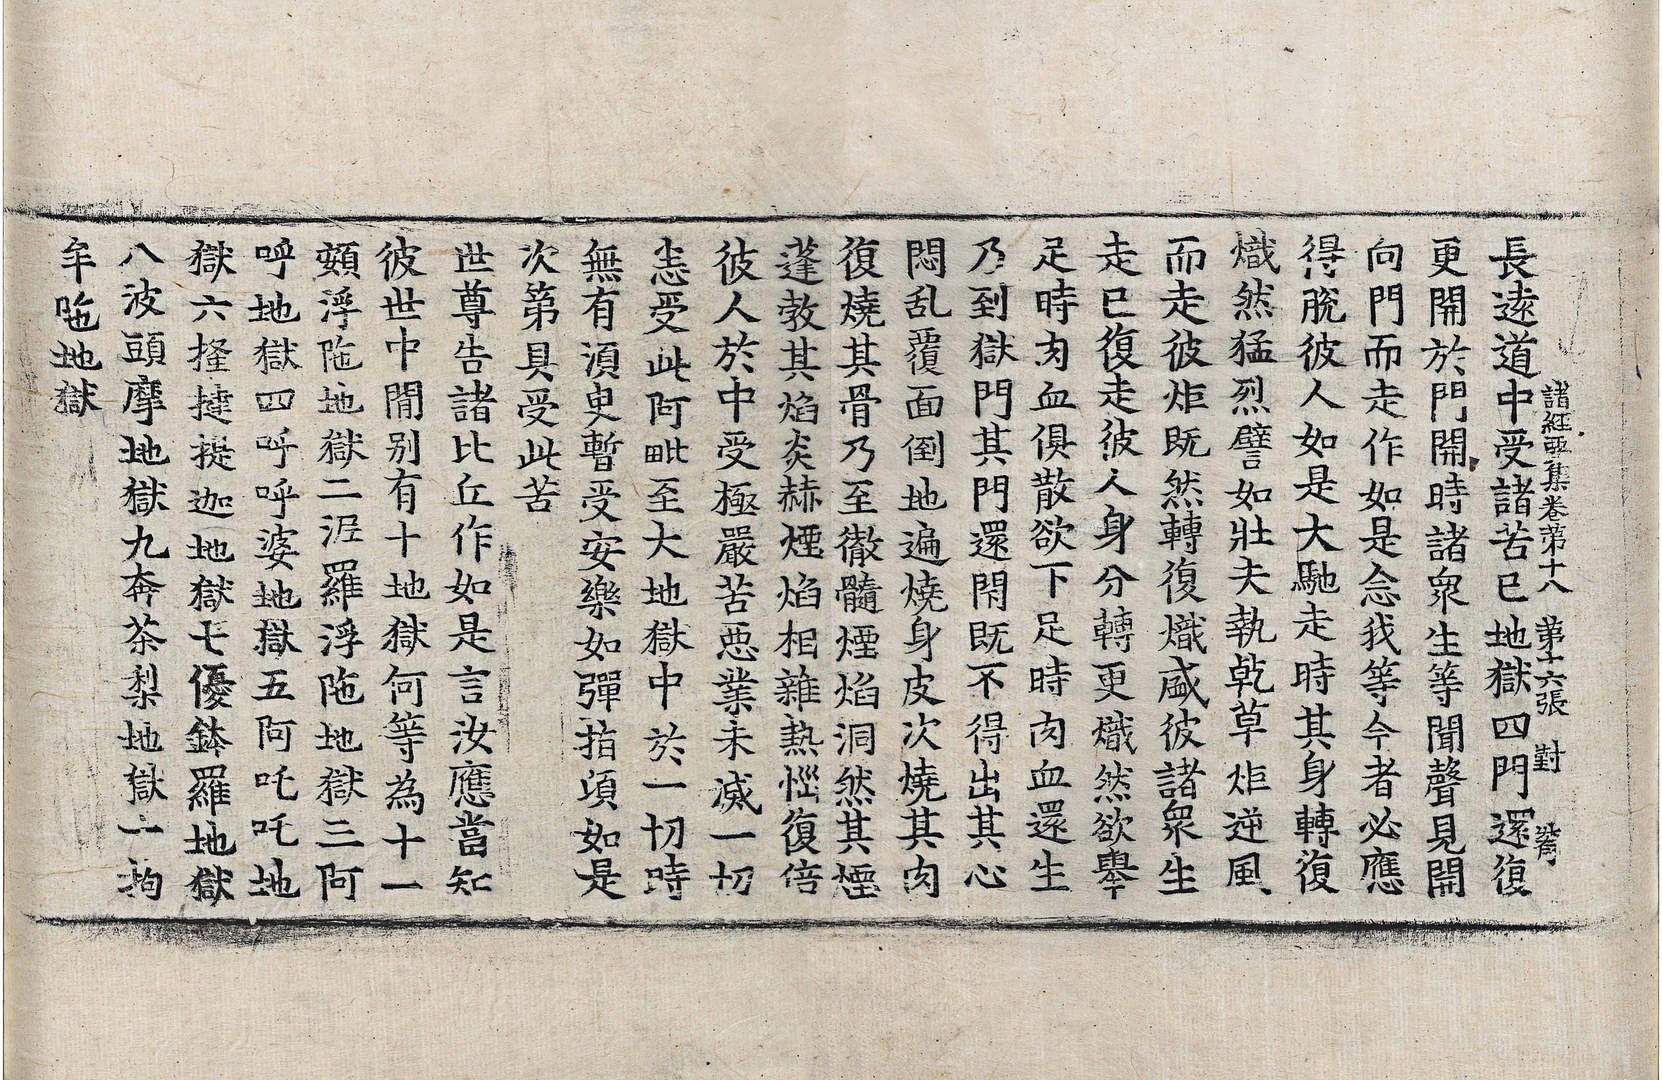 諸經要集卷第十八 第十六張 對
長遠道中受諸苦已地獄四門還復
更開於門開時諸衆生等聞聲見開
向門而走作如是念我等今者必應
得脫彼人如是大馳走時其身轉復
熾然猛烈譬如壯夫執乾草炬逆風
而走彼炬既然轉復熾盛彼諸衆生
走已復走彼人身分轉更熾然欲舉
足時肉血俱散欲下足時肉血還生
乃到獄門其門還閇既不得出其心
悶乱覆面倒地遍燒身皮次燒其肉
復燒其骨乃至徹髓煙焰洞然其煙
蓬㶿其焰炎赫煙焰相雜熱惱復倍
彼人於中受極嚴苦惡業未滅一切
悉受此阿毗至大地獄中於一切時
無有湏臾暫受安樂如彈指頃如是
次第具受此苦
世尊告諸比丘作如是言汝應當知
彼世中閒别有十地獄何等為十一
頞浮陁地獄二泥羅浮陁地獄三阿
呼地獄四呼呼婆地獄五阿吒吒地
獄六搔揵提迦地獄七優鉢羅地獄
八波頭摩地獄九奔荼梨地獄十拘
牟陁地獄